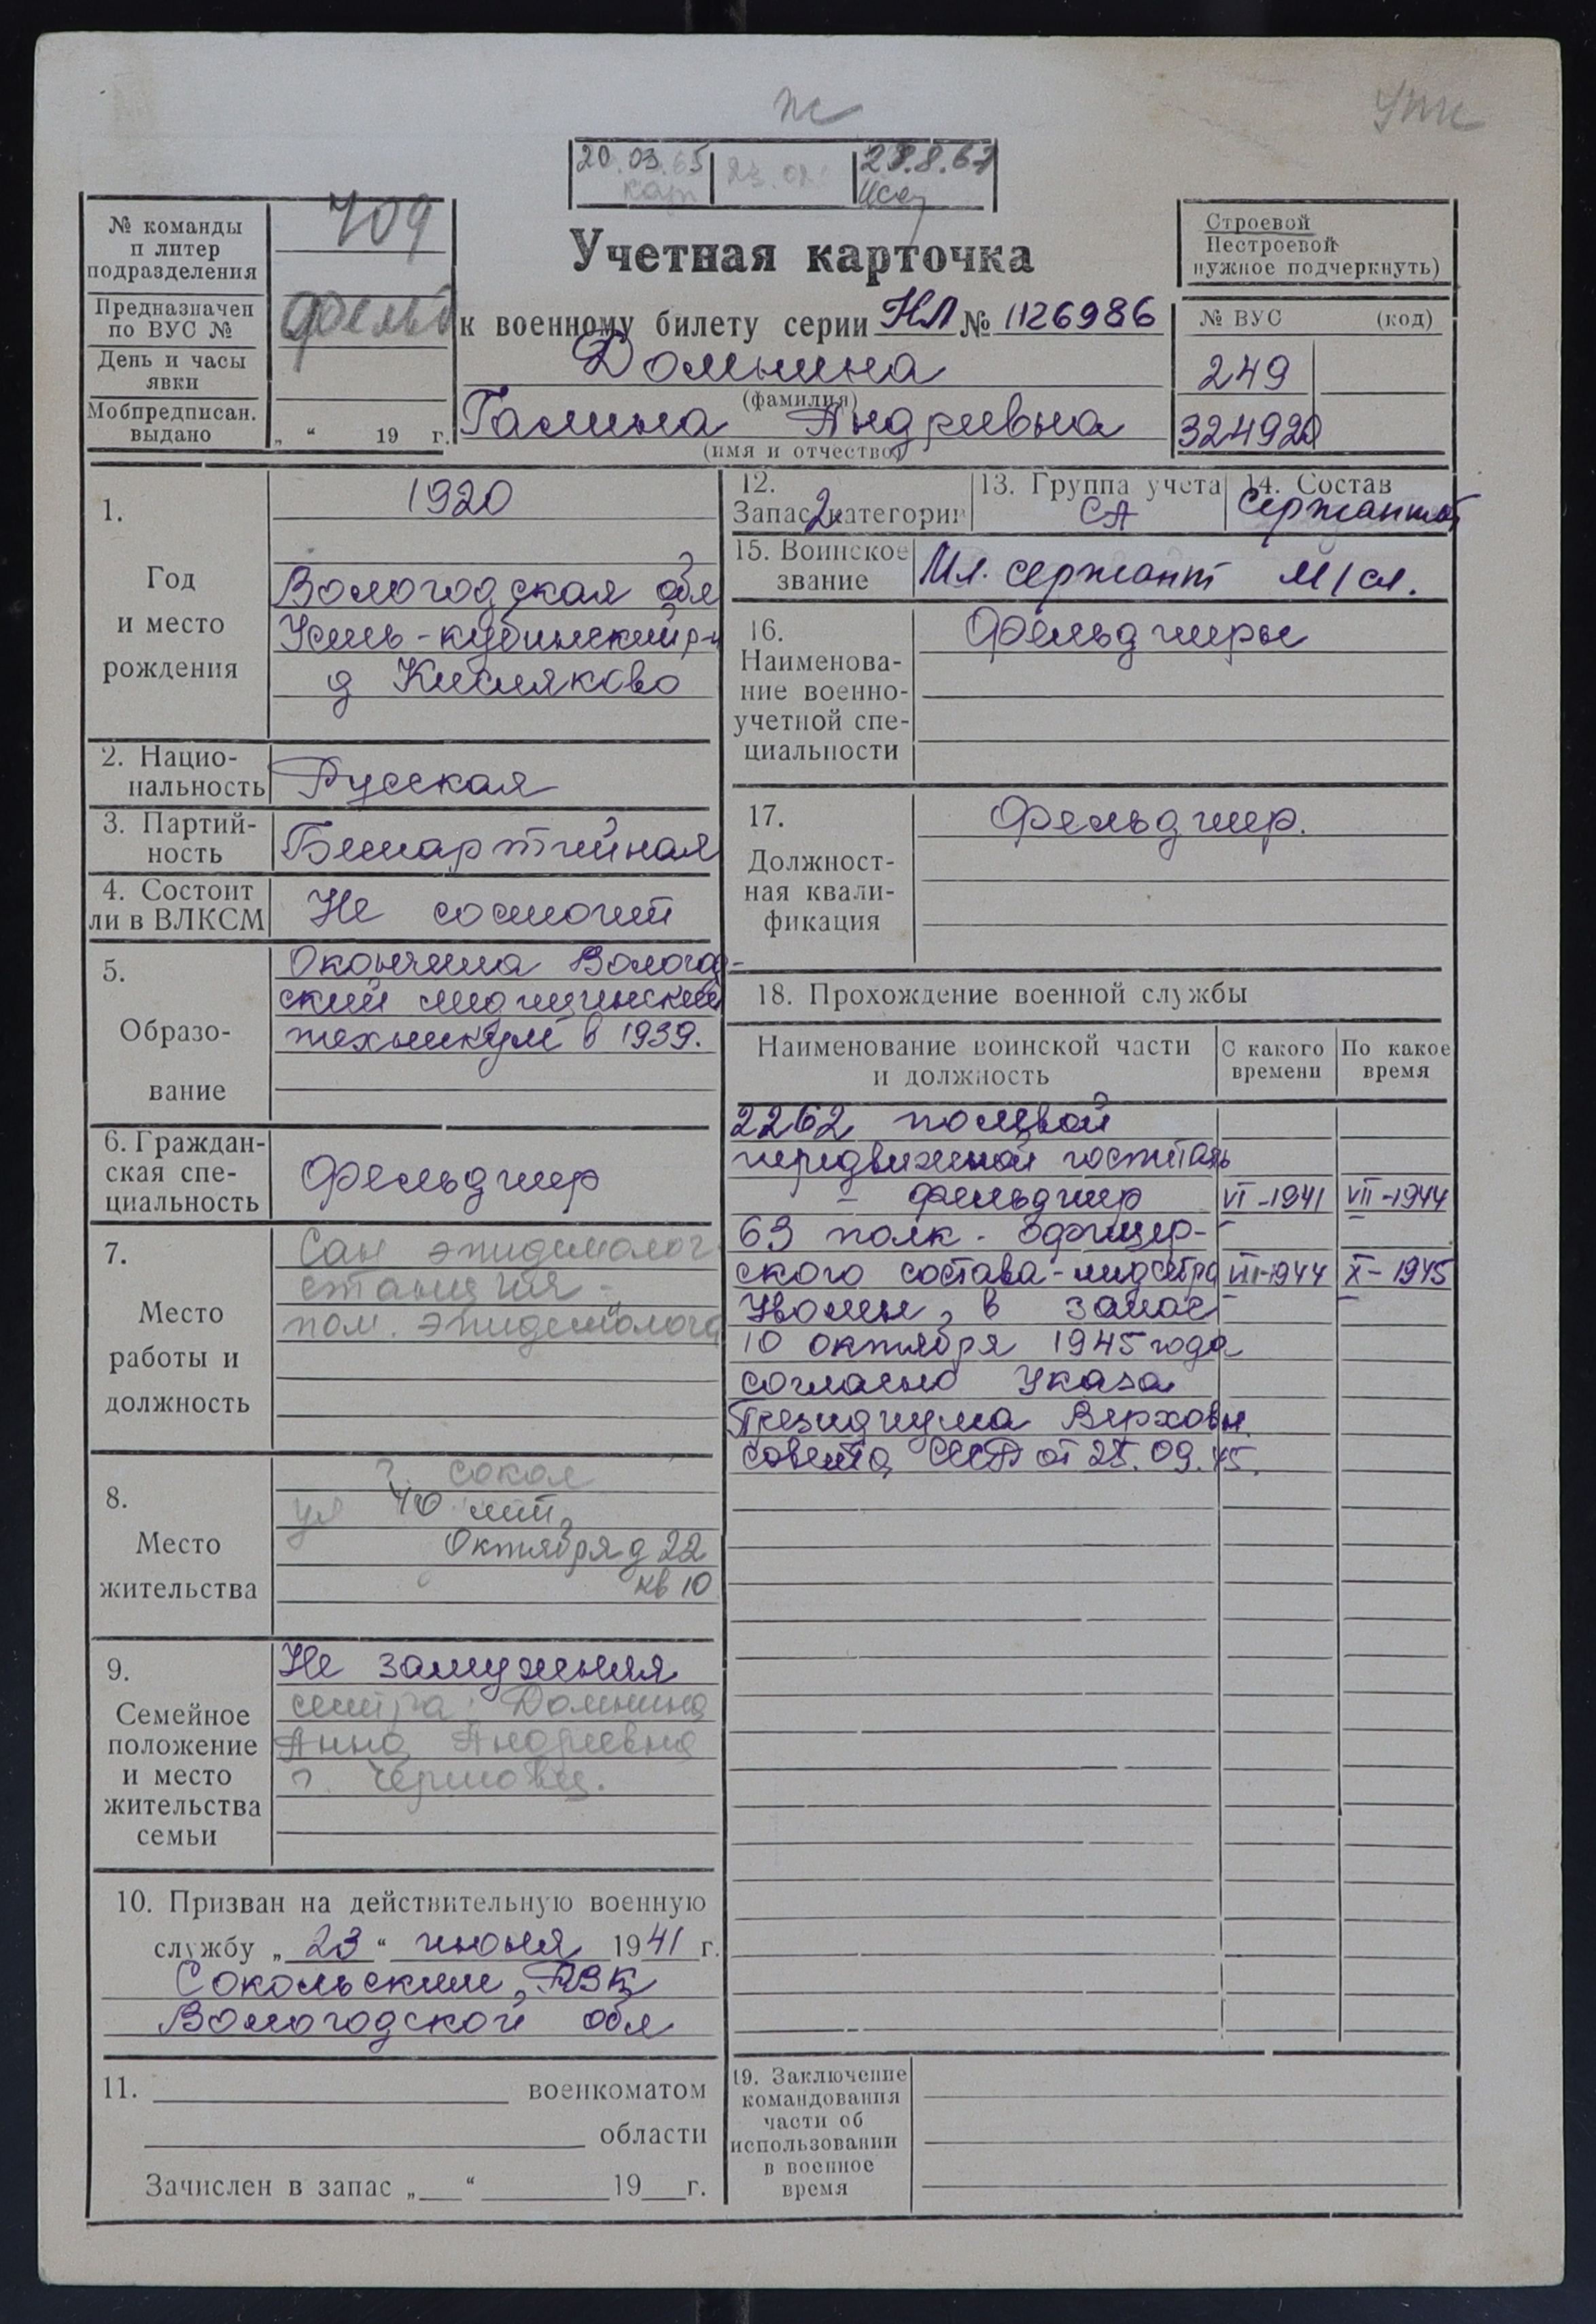 ж
УПК
20.03.65
28.8.67
№ команды
и литер
подразделения
709
Предназначен
по ВУС №
фельд
День и часы
явки
Мобпредписан.
выдано
„ “ 19 г.
Учетная карточка
к военному билету серии НЛ № 1126986
Домнина
(фамилия)
Галина Андреевна
(имя и отчество)
Строевой
Нестроевой
нужное подчеркнуть)
№ ВУС (код)
249
324920
1.
Год
и место
рождения
1920
Вологодская обл
Усть-кубинский р-н
д Кисляково
2. Нацио-
нальность
Русская
3. Партий-
ность
Беспартийная
4. Состоит
ли в ВЛКСМ
Не состоит
5.
Образо-
вание
Окончила Вологод-
ский медицинский
техникум в 1939.
6. Граждан-
ская спе-
циальность
Фельдшер
7.
Место
работы и
должность
Сан эпидемолог
станция -
пом. эпидемолога
8.
Место
жительства
г. Сокол
ул 40 лет
Октября д 22
кв 10
9.
Семейное
положение
и место
жительства
семьи
Не замужняя
сестра: Домнина
Анна Андреевна
г. Черповец.
10. Призван на действительную военную
службу „ 23 “ июня 1941 г.
Сокольским РВК
Вологодской обл
11. военкоматом
области
Зачислен в запас „ “ 19 г.
12.
Запас 2 категории
13. Группа учета
СА
14. Состав
Сержантов
15. Воинское
звание
Мл. сержант м/сл.
16.
Наименова-
ние военно-
учетной спе-
циальности
Фельдшеры
17.
Должност-
ная квали-
фикация
Фельдшер.
18. Прохождение военной службы
Наименование воинской части
и должность
С какого
времени
По какое
время
2262 полевой
передвижной госпиталь
- фельдшер VI-1941 VII-1944
63 полк - офицер-
ского состава - медсестра VII-1944 X-1945
Уволен в запас
10 октября 1945 года
согласно Указа
Президиума Верховн.
Совета СССР от 25.09.45.
19. Заключение
командования
части об
использовании
в военное
время